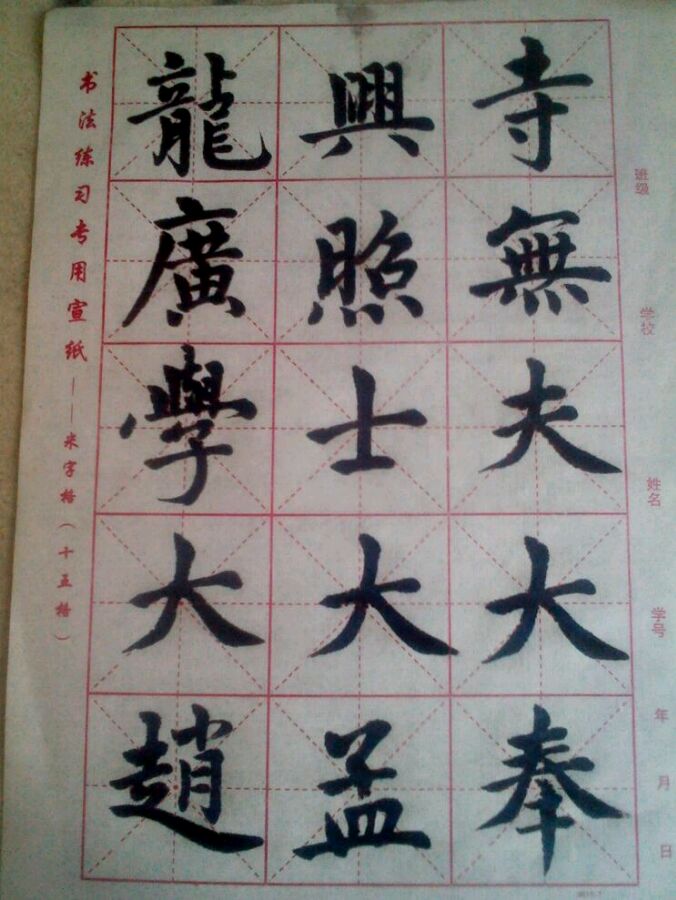 书法练习专用宣纸——米字格（十五格）
龍興寺
廣照無
學士夫
大大大
趙孟奉
班级
学校
姓名
学号
年月日